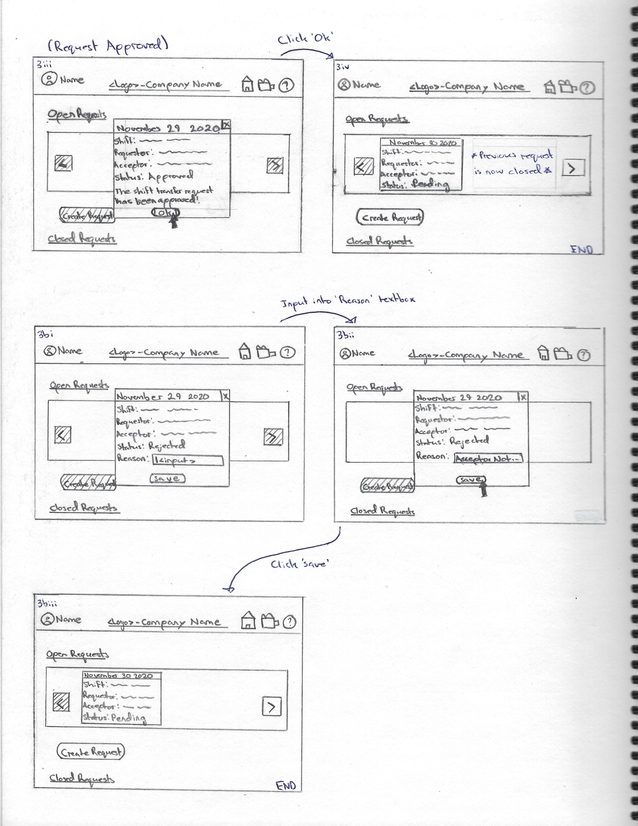 (Request Approved)
Click 'Ok'
3iii
Name
<Logo>-Company Name
?
Open Requests
November 29 2020 X
Shift:
Requestor:
Acceptor:
Status: Approved
The shift transfer request
has been approved!
Ok
<
>
Create Request
Closed Requests
3iv
Name
<Logo>-Company Name
?
Open Requests
November 30 2020
Shift:
Requestor:
Acceptor:
Status: Pending
<
* Previous request
is now closed *
>
Create Request
Closed Requests
END
Input into 'Reason' textbox
3bi
Name
<Logo>-Company Name
?
Open Requests
November 29 2020 X
Shift:
Requestor:
Acceptor:
Status: Rejected
Reason: <input>
Save
<
>
Create Request
Closed Requests
3bii
Name
<Logo>-Company Name
?
Open Requests
November 29 2020 X
Shift:
Requestor:
Acceptor:
Status: Rejected
Reason: Acceptor Not...
Save
Create Request
Closed Requests
Click 'save'
3biii
Name
<Logo>-Company Name
?
Open Requests
November 30 2020
Shift:
Requestor:
Acceptor:
Status: Pending
<
>
Create Request
Closed Requests
END